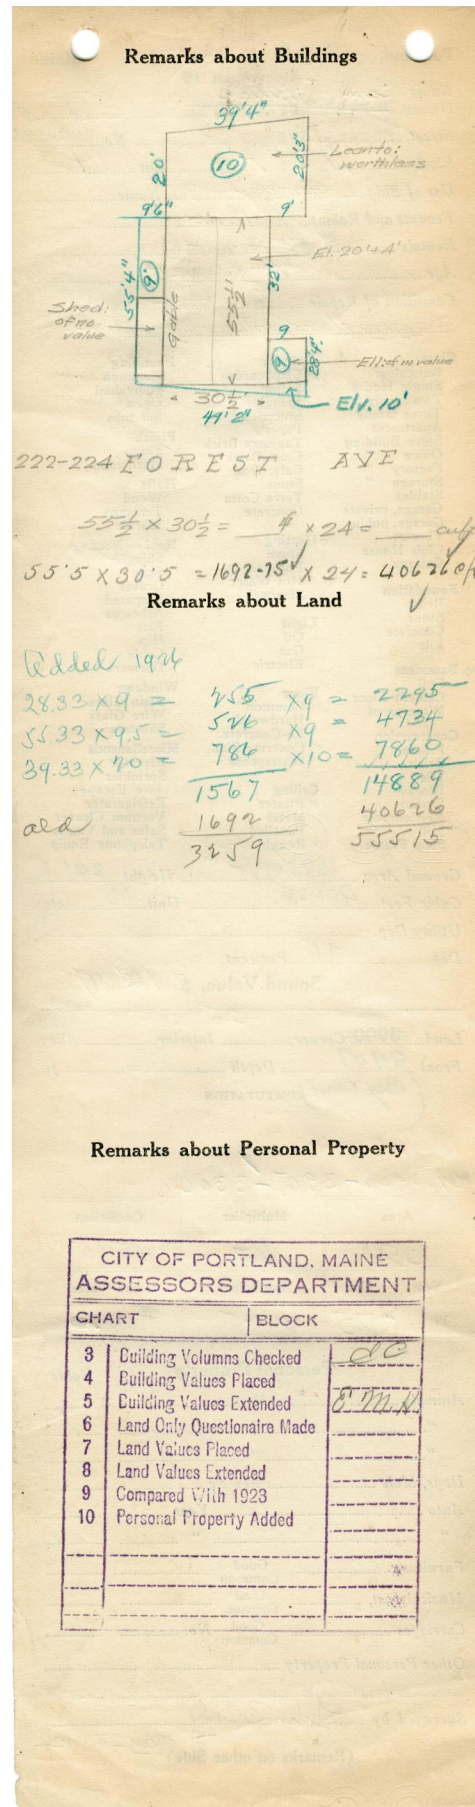 Remarks about Buildings
39'4"
20'
10
20'3"
Leanto:
worthless
9'6"
9'
El. 20'+4'
55'4"
9'
Gable
55½
32'
Shed:
of no
value
9
9
28'4"
Ell: of no value
30½
49'2"
Elv. 10'
222-224 FOREST AVE
55½ X 30½ = ____ # X 24 = ____ cuft
55'5 X 30'5 = 1692-75 ✓ X 24 = 40626 c/f
Remarks about Land
Added 1926
28.33 X 9 = 255 X9 = 2295
55.33 X 9.5 = 526 X9 = 4734
39.33 X 20 = 786 X10 = 7860
1567 14889
old 1692 40626
3259 55515
Remarks about Personal Property
CITY OF PORTLAND, MAINE
ASSESSORS DEPARTMENT
CHART BLOCK
3 Building Volumns Checked
4 Building Values Placed
5 Building Values Extended E M H
6 Land Only Questionaire Made
7 Land Values Placed
8 Land Values Extended
9 Compared With 1923
10 Personal Property Added